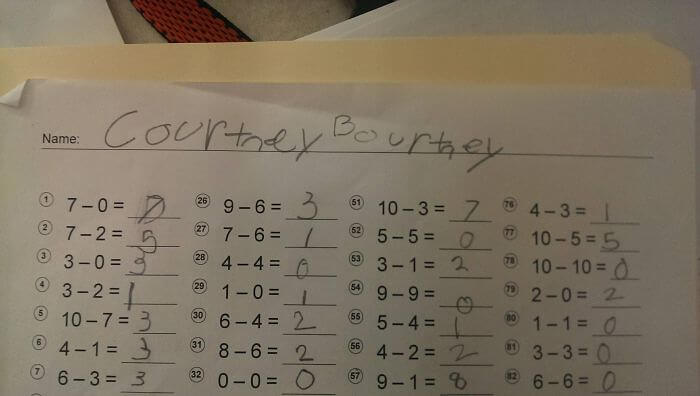 Name: Courtney Bourtney
1 7 – 0 = 7 26 9 – 6 = 3 51 10 – 3 = 7 76 4 – 3 = 1
2 7 – 2 = 5 27 7 – 6 = 1 52 5 – 5 = 0 77 10 – 5 = 5
3 3 – 0 = 3 28 4 – 4 = 0 53 3 – 1 = 2 78 10 – 10 = 0
4 3 – 2 = 1 29 1 – 0 = 1 54 9 – 9 = 0 79 2 – 0 = 2
5 10 – 7 = 3 30 6 – 4 = 2 55 5 – 4 = 1 80 1 – 1 = 0
6 4 – 1 = 3 31 8 – 6 = 2 56 4 – 2 = 2 81 3 – 3 = 0
7 6 – 3 = 3 32 0 – 0 = 0 57 9 – 1 = 8 82 6 – 6 = 0